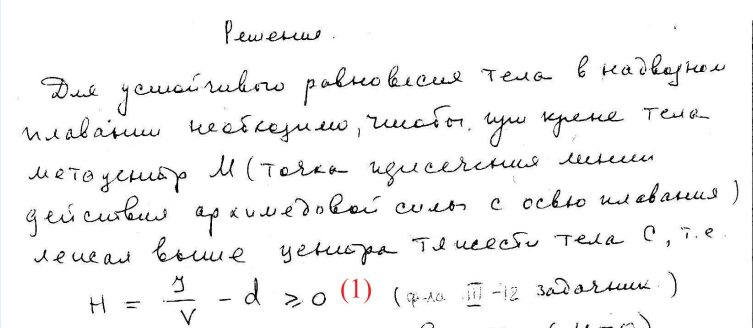 Решение.
Для устойчивого равновесия тела в надводном
плавании необходимо, чтобы при крене тела
метацентр М (точка пересечения линии
действия архимедовой силы с осью плавания)
лежал выше центра тяжести тела С, т.е.
H = J/V - d ≥ 0 (1) (ф-ла III-12 задачник.)